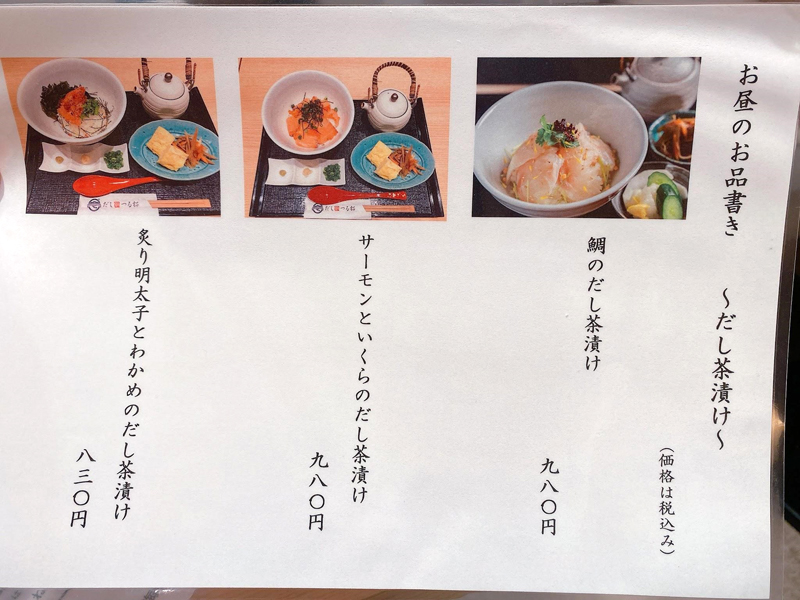 お昼のお品書き
～だし茶漬け～
（価格は税込み）
鯛のだし茶漬け
九八〇円
サーモンといくらのだし茶漬け
九八〇円
炙り明太子とわかめのだし茶漬け
八三〇円